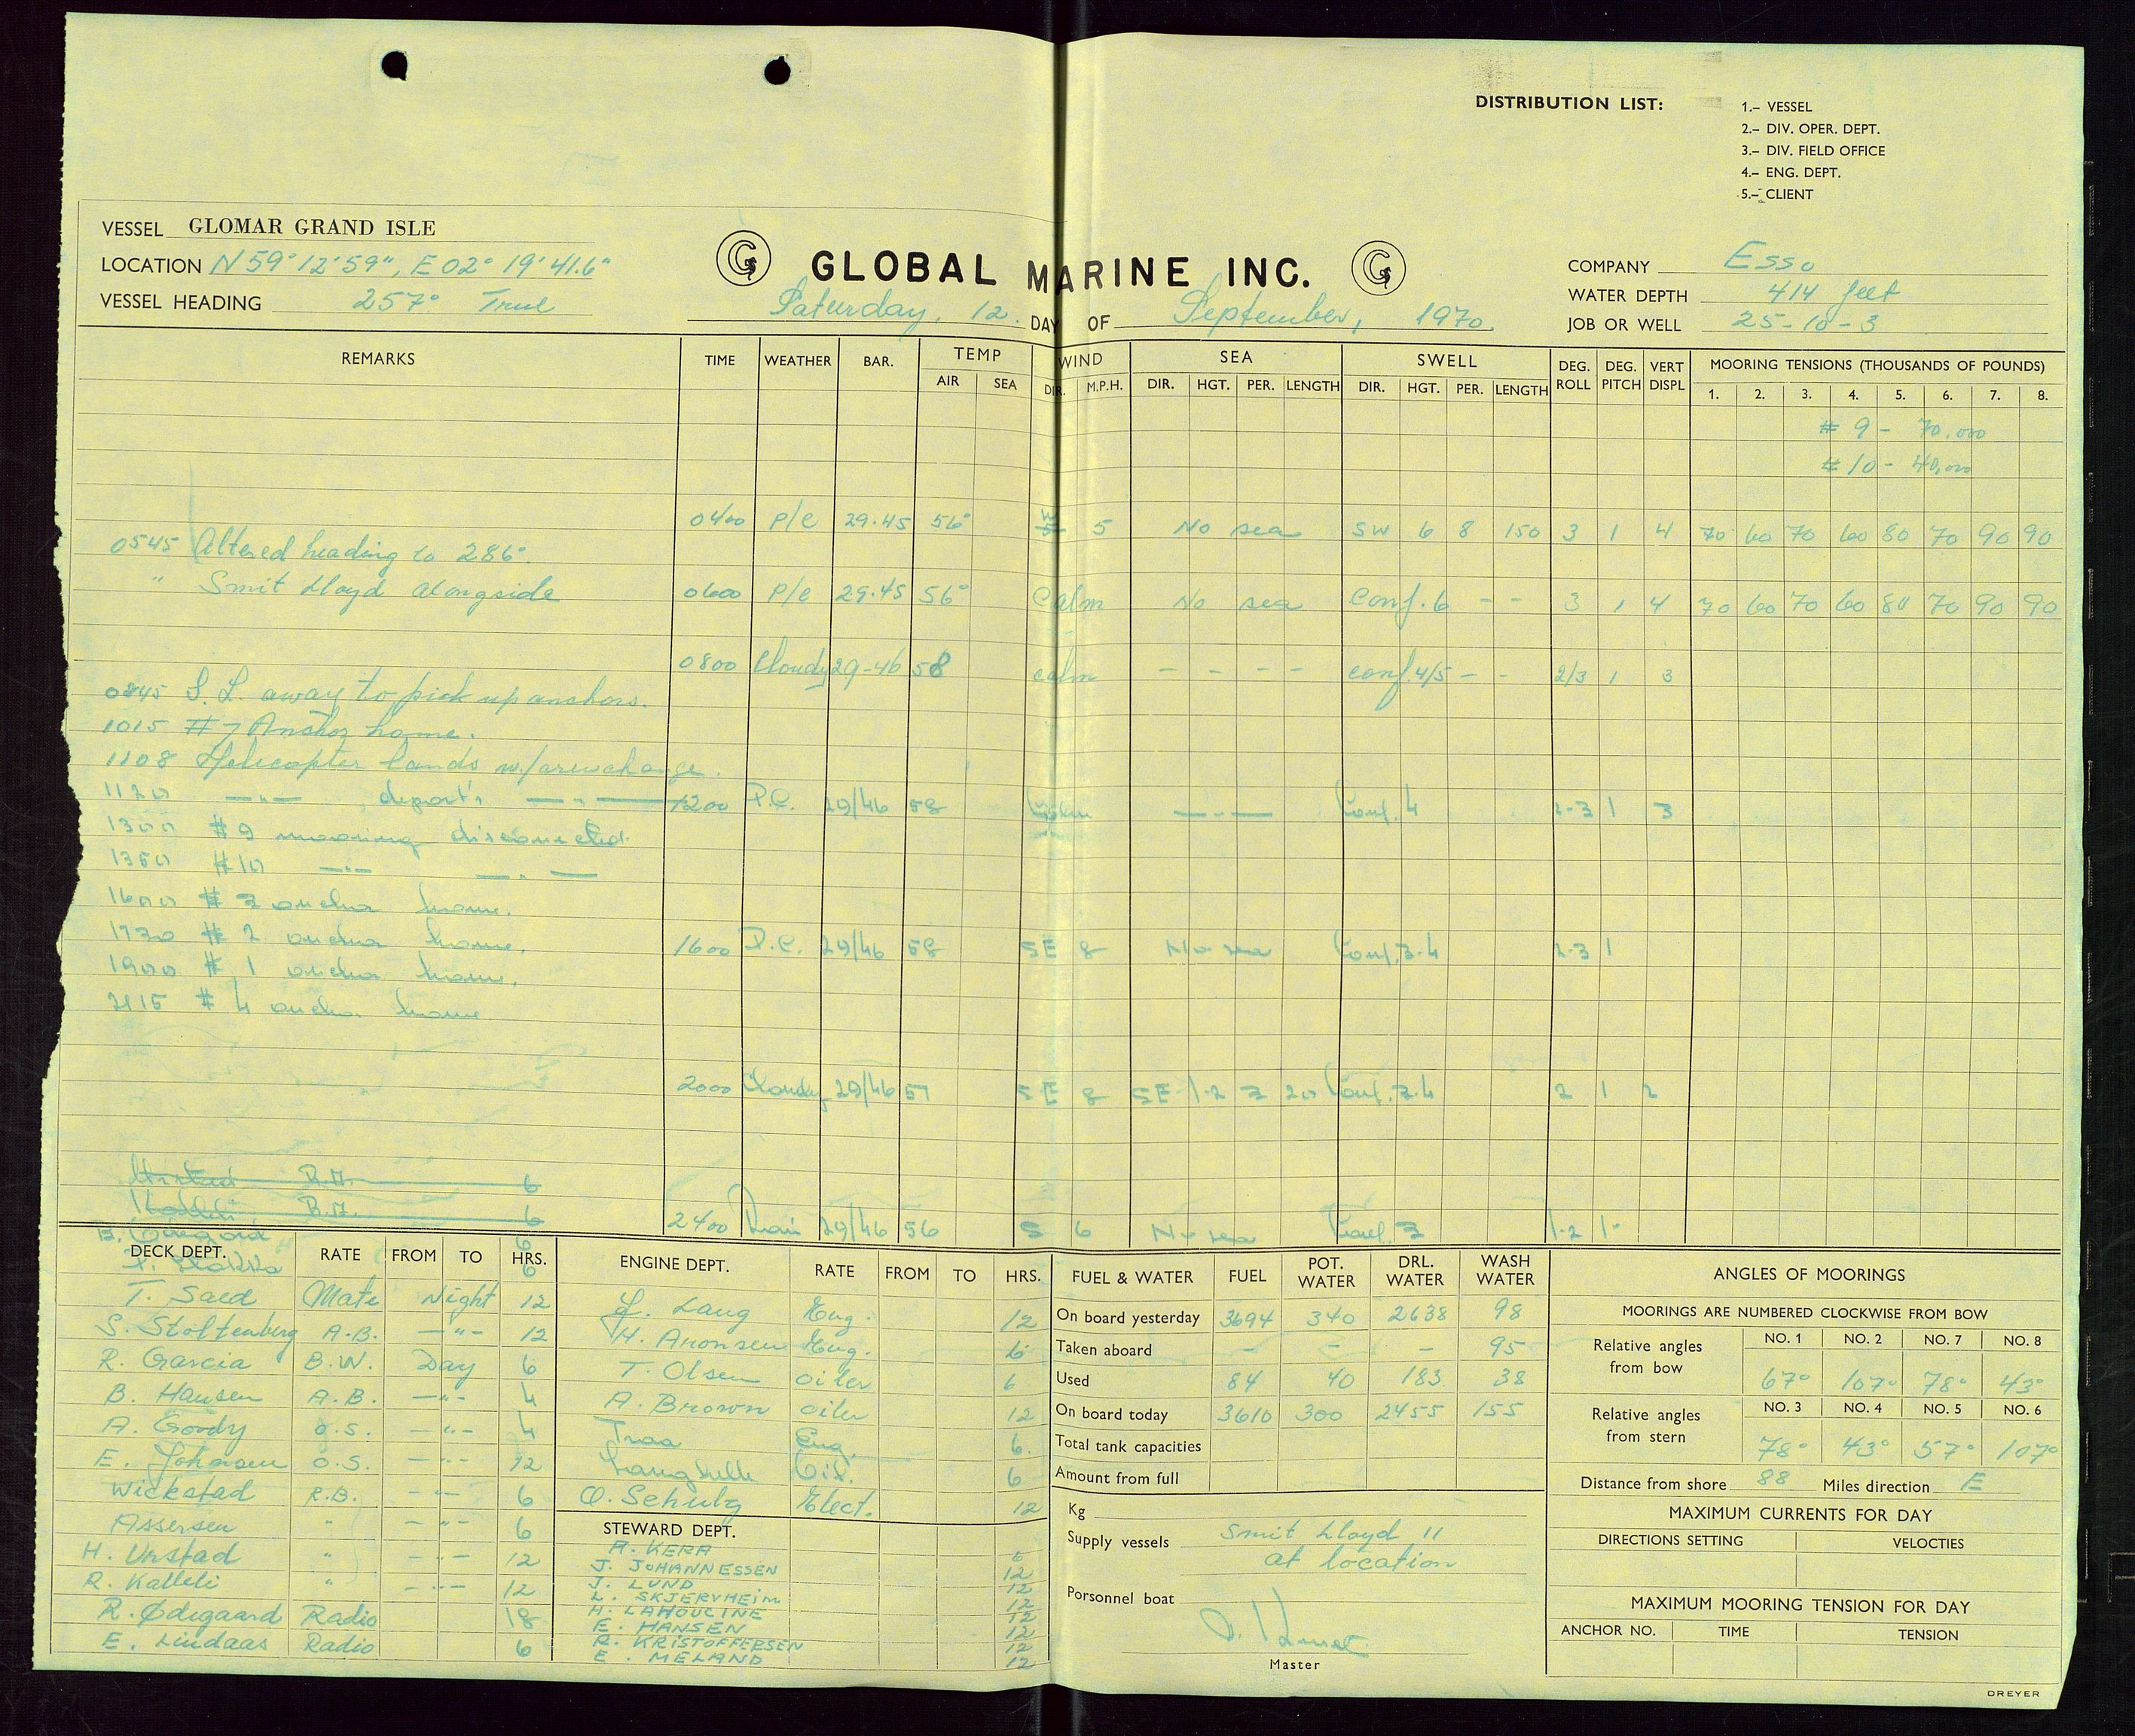 DISTRIBUTION LIST:
1.– VESSEL
2.– DIV. OPER. DEPT.
3.– DIV. FIELD OFFICE
4.– ENG. DEPT.
5.– CLIENT
VESSEL GLOMAR GRAND ISLE
LOCATION N 59° 12' 59", E 02° 19' 41.6"
VESSEL HEADING 257° True
GLOBAL MARINE INC.
Saturday, 12. DAY OF September, 1970.
COMPANY Esso
WATER DEPTH 414 feet
JOB OR WELL 25-10-3
REMARKS TIME WEATHER BAR. TEMP WIND SEA SWELL DEG. ROLL DEG. PITCH VERT DISPL MOORING TENSIONS (THOUSANDS OF POUNDS)
AIR SEA DIR. M.P.H. DIR. HGT. PER. LENGTH DIR. HGT. PER. LENGTH 1. 2. 3. 4. 5. 6. 7. 8.
# 9 - 70,000
# 10 - 40,000
0400 P/c 29.45 56° 5 No sea SW 6 8 150 3 1 4 70 60 70 60 80 70 90 90
0545 Altered heading to 286°.
" Smit Lloyd alongside 0600 P/c 29.45 56° Calm No sea Conf. 6 - - 3 1 4 70 60 70 60 80 70 90 90
0800 Cloudy 29-46 58 calm - - - - conf 4/5 - - 2/3 1 3
0845 S. L. away to pick up anchors.
1015 # 7 Anchor home.
1108 Helicopter lands w/crewchange.
1120 —"— departs —"— 1200 P.C. 29/46 58 Calm —"— Conf. 4 2-3 1 3
1300 # 9 mooring disconected.
1350 # 10 —"— —"—
1600 # 3 anchor home.
1730 # 2 anchor home. 1600 P.C. 29/46 58 SE 8 No sea Conf. 3-4 2-3 1
1900 # 1 anchor home.
2115 # 4 anchor home.
2000 Cloudy 29/46 57 SE 8 SE 1-2 3 20 Conf. 3-4 2 1 2
6
6
2400 Rain 29/46 56 S 6 No sea Conf. 3 1-2 1
6
6
DECK DEPT. RATE FROM TO HRS.
T. Saed Mate Night 12
S. Stoltenberg A.B. —"— 12
R. Garcia B.W. Day 6
B. Hansen A.B. —"— 4
A. Goody O.S. —"— 4
E. Johansen O.S. —"— 12
Wickstad R.B. —"— 6
Assersen " —"— 6
H. Urstad " —"— 12
R. Kalleli " —"— 12
R. Ødegaard Radio 18
E. Lindaas Radio 6
ENGINE DEPT. RATE FROM TO HRS.
Y. Laug Eng. 12
H. Aronsen Eng. 6
T. Olsen oiler 6
A. Brown oiler 12
Traa Eng. 6.
Oil. 6
O. Schulz Elect. 12
STEWARD DEPT.
A. KERA 6
J. JOHANNESSEN 12
J. LUND 12
L. SKJERVHEIM 12
H. LAHOUCINE 12
E. HANSEN 12
R. KRISTOFFERSEN 12
E. MELAND 12
FUEL & WATER FUEL POT. WATER DRL. WATER WASH WATER
On board yesterday 3694 340 2638 98
Taken aboard - - - 95
Used 84 40 183 38
On board today 3610 300 2455 155
Total tank capacities
Amount from full
Kg
Supply vessels Smit Lloyd 11
at location
Porsonnel boat
Master
ANGLES OF MOORINGS
MOORINGS ARE NUMBERED CLOCKWISE FROM BOW
Relative angles from bow NO. 1 NO. 2 NO. 7 NO. 8
67° 107° 78° 43°
Relative angles from stern NO. 3 NO. 4 NO. 5 NO. 6
78° 43° 57° 107°
Distance from shore 88 Miles direction E
MAXIMUM CURRENTS FOR DAY
DIRECTIONS SETTING VELOCTIES
MAXIMUM MOORING TENSION FOR DAY
ANCHOR NO. TIME TENSION
DREYER